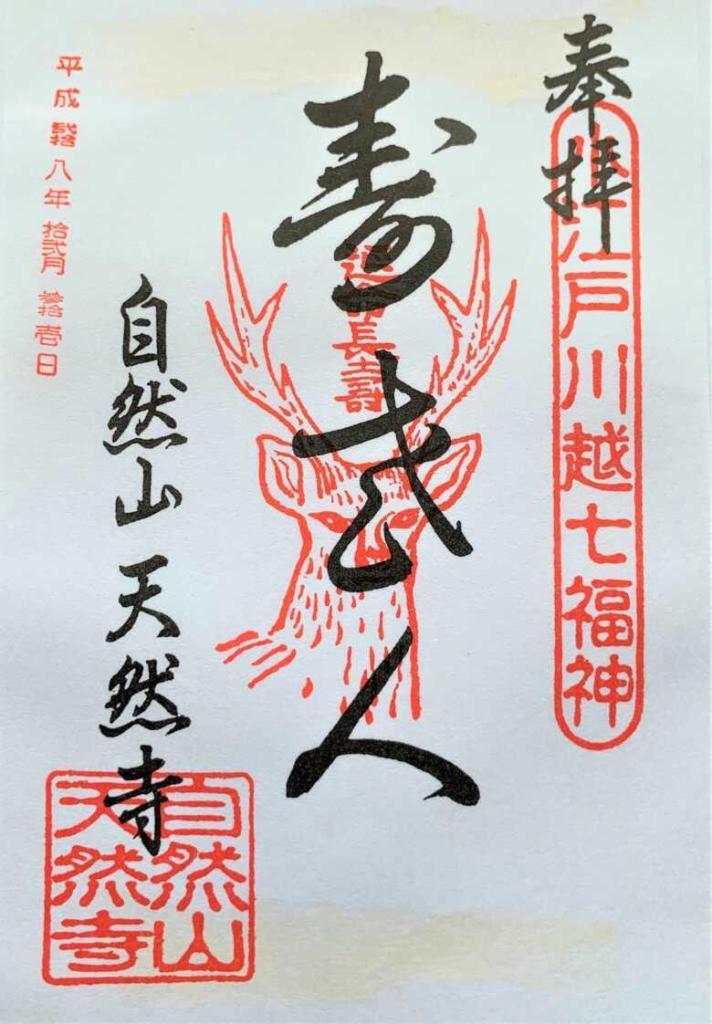 奉拝
小江戸川越七福神
寿老人
延命長壽
自然山 天然寺
自然山
天然寺
平成弐拾八年 拾弐月 参拾壱日